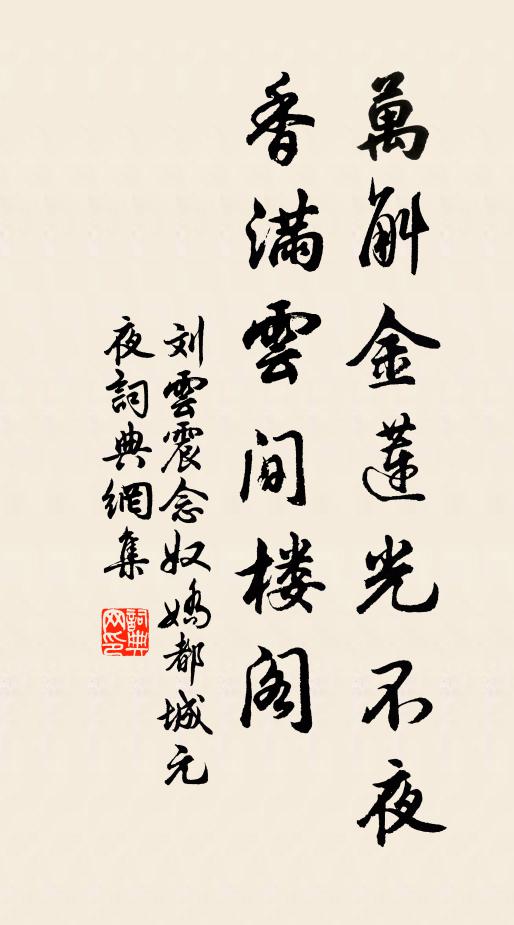 萬斛金蓮光不夜
香滿雲间楼阁
刘雲震念奴嬌都城元
夜詞典網集
詞典网印